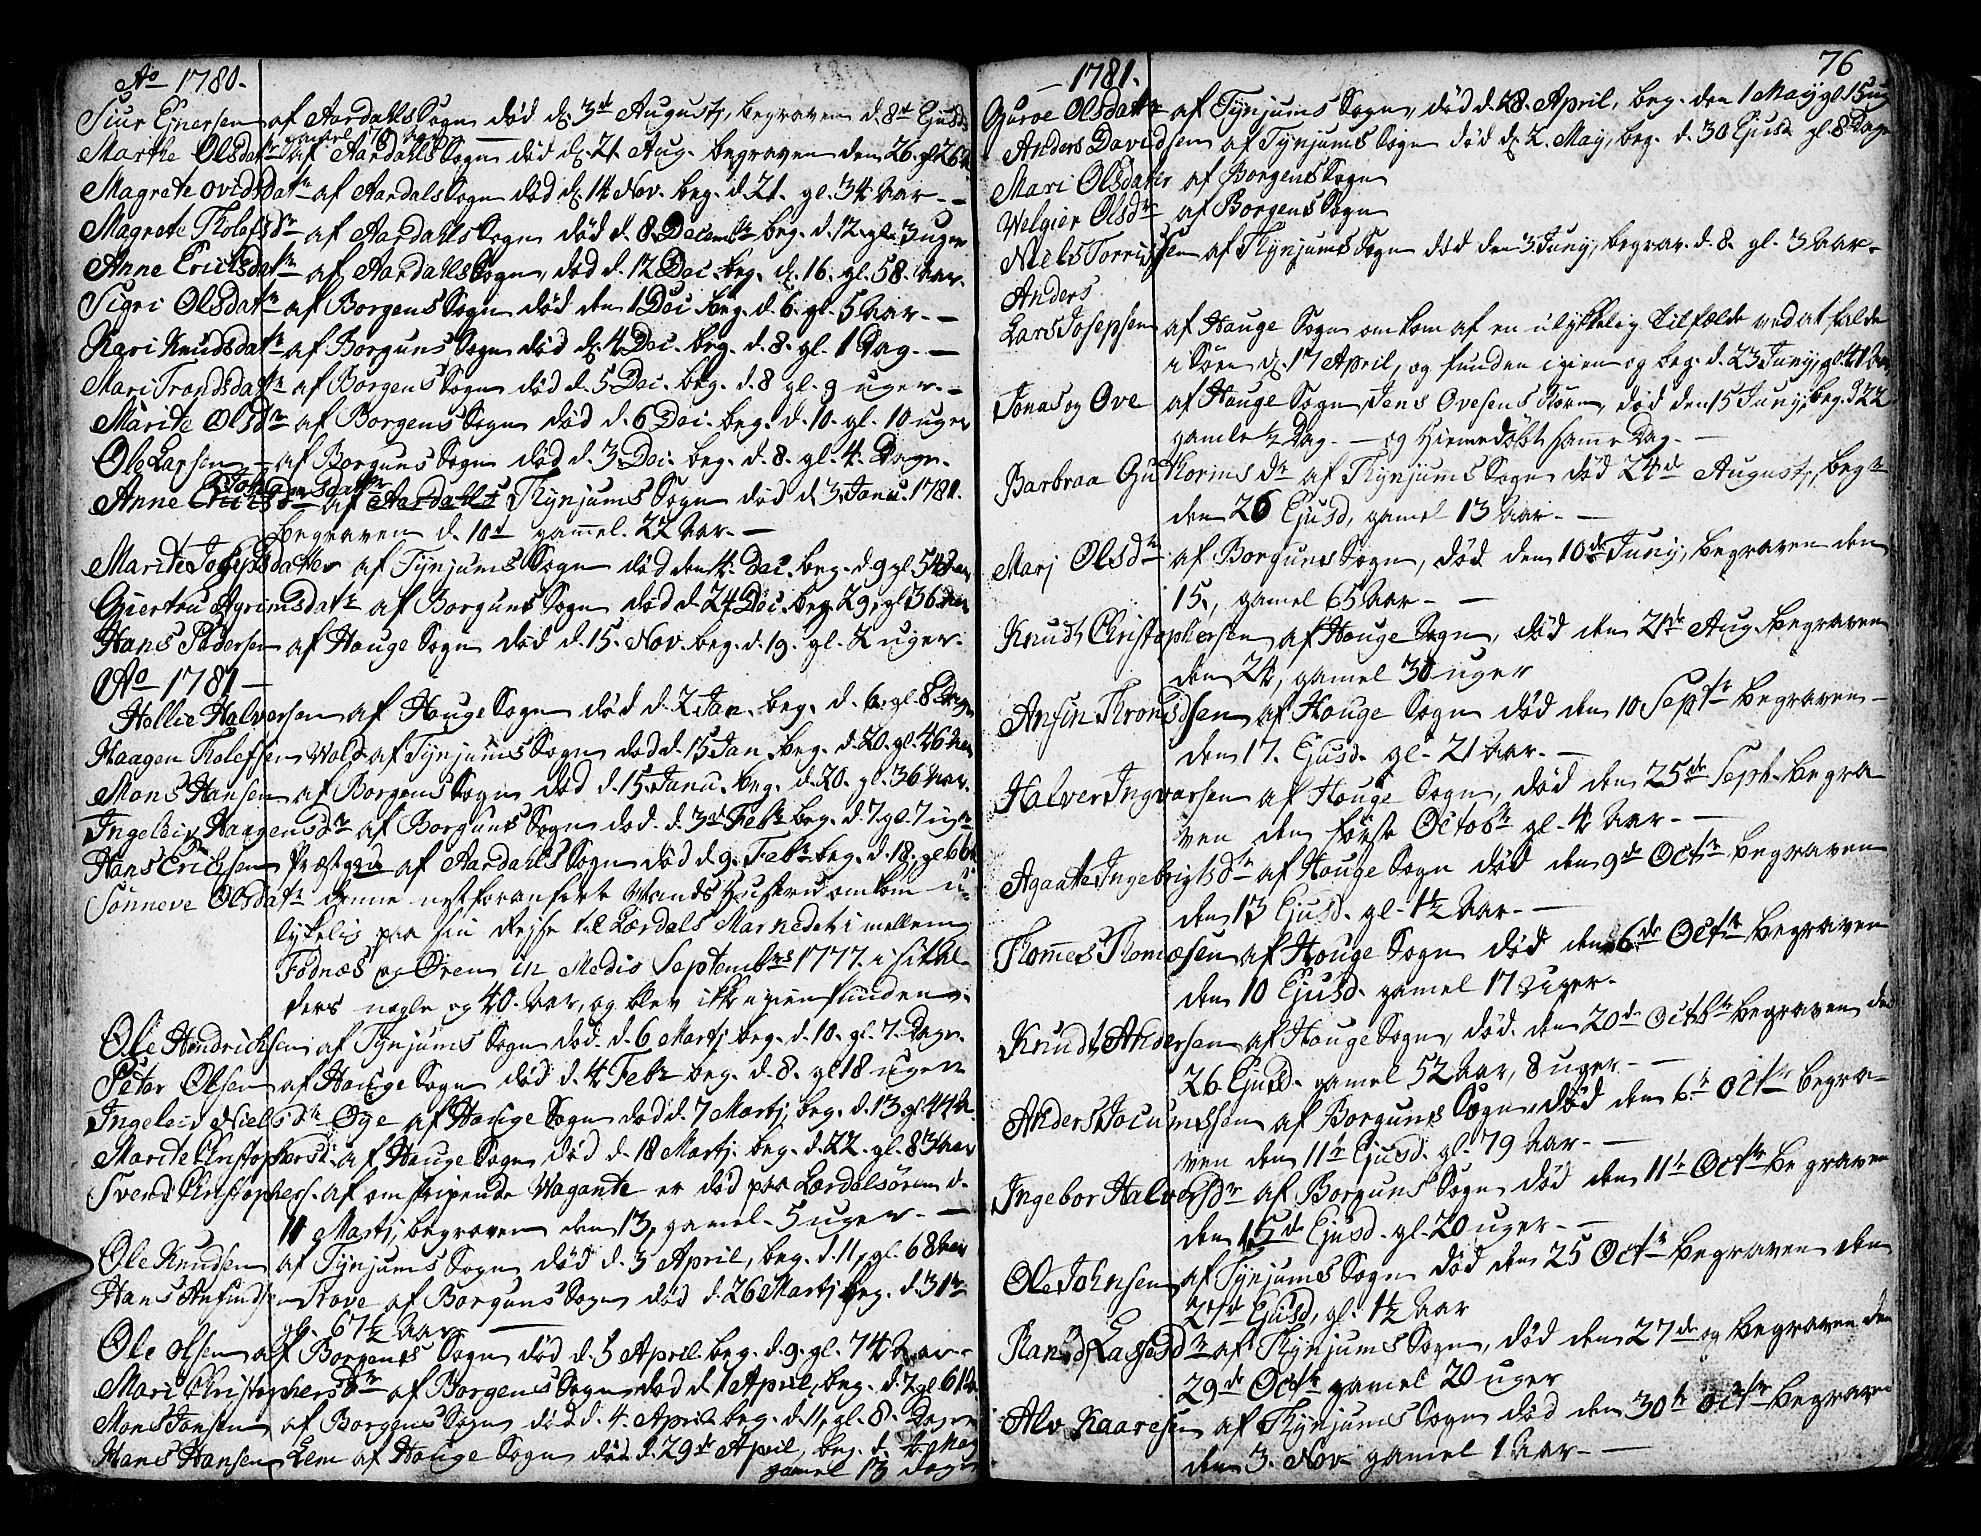 Ao 1780.
Siur Ejnersen af Aardahls Sogn død d. 3d Augusti, begraven d. 8d Ejusd.
gamel 1 1/2 Aar
Marthe Olsdatr af Aardahls Sogn død d. 21 Aug. begraven den 26. gl. 26
Magrete ovidsdatr af Aardals Sogn død d. 14 Nov. beg. d. 21. gl. 34 Aar
Magrete Tholefsdr af Aardahls Sogn død d. 8 Decembr beg. d. 12. gl. 3 uger
Anne Erichsdatr af Aardahls Sogn, død d. 12 Dec. beg. d. 16. gl. 58. Aar.
Sigri Olsdatr af Borgens Sogn død den 1 Dec beg. d. 6. gl. 5 Aar.
Kari Knudsdatr af Borguns Sogn død d. 4 Dec. beg. d. 8. gl. 1 Dag.
Mari Trondsdatr af Borgens Sogn død d. 5 Dec. beg. d. 8 gl. 9 uger.
Marite Olsdr af Borgens Sogn død d. 6 Dec. beg. d. 10. gl. 10 uger
Ole Larsen af Borguns Sogn død d. 3 Dec. beg. d. 8. gl. 4. Dage.
Anne Erichsdr af Aardahls Thynjums Sogn død d. 3 Janu. 1781.
begraven d. 10d gamel. 22 Aar.
Marite Josephsdatter af Tynjums Sogn død den 4. Dec. beg. d. 9 gl. 54 Aar
Giertru Agrimsdatr af Borguns Sogn død d. 24 Dec. beg. 29, gl. 36 Aar
Hans Pedersen af Houge Sogn død d. 15. Nov. beg. d. 19. gl. 2 uger.
Ao 1781
Hollie Halversen af Houge Sogn død d. 2 Jan. beg. d. 6. gl. 8 Dage
Haagen Tholefsen Wold af Tynjums Sogn død d. 15 Jan. beg. d. 20. gl. 46 Aar
Mons Hansen af Borgens Sogn død d. 15 Janu. beg. d. 20. gl. 36 Aar.
Ingeleiv Haagensdr af Borguns Sogn død. d. 3d Febr beg. d. 7. gl. 7 uger
Hans Erichsen Præstgrd af Aardahls Sogn død d. 9. Febr beg. d. 18. gl. 66
Sønneve Olsdatr denne nestforanførte Mands Hustru omkom u-
lykelig paa sin Rejse til Lærdals Markedet i mellem
Fodnæs og Øren in Medio Septembris 1777. i sit Al-
ders nogle og 40. Aar, og blev ikke igien funden.
Ole Hendrichsen af Tynjums Sogn død. d. 6 Martj beg. d. 10. gl. 7. Dage.
Peter Olsen af Houge Sogn død d. 4 Febr beg. d. 8. gl. 18 uger
Ingeleid Nielsdr Øge af Houge Sogn død d. 7 Martj, beg. d. 13 gl. 44 A
Marite Christophersd. af Houge Sogn død d. 18 Martj. beg. d. 22. gl. 83 Aar
Svend Christophers. af omstripende Vagante er død paa Lærdalsøren d.
11 Martj, begraven den 13, gamel. 5 uger.
Ole Knudsen af Tynjums Sogn død d. 3 April, beg. d. 11, gl. 68 Aar
Hans Anfindsen Rove af Borguns Sogn død d. 26 Martj beg. d. 31
gl. 67 1/2 Aar
Ole olsen af Borgens Sogn død d. 5 April. beg. d. 9. gl. 74 Aar.
Mari Christophersdr af Borgens Sogn død d. 1 April, beg. d. 7. gl. 61
Mons Jonsen af Borgens Sogn, død d. 4. April beg. d. 11, gl. 8. Dage
Hans Hansen Lem af Houge Sogn død d. 29de April, beg. d. 4 Maj
gamel 13 dage
76
1781.
Guroe Olsdatr af Tynjums Sogn, død d. 28. April, beg. den 1 Maij gl. 15 ug
Anders Davidsen af Tynjums Sogn død d. 2. May, beg. d. 30 Ejusd gl. 8 Dage
Mari Olsdatr af Borgens Sogn
Welgier Olsdr af Borgens Sogn
Niels Torrisen af Thynjums Sogn død den 3 Junj, begrav. d. 8. gl. 3 Aar.
Anders
Lars Josephsen af Houge Sogn omkom af en ulykkelig tilfælde ved at falde
i Søen d. 17 April, og funden igien og beg. d. 23 Junj, gl. 41 Aar
Jonas og Ove af Houge Sogn, Jens Ovesens Børn, død den 15 Junj, beg. d. 22
gamle 1/2 Dag. og Hiemedøbt samme Dag.
Barbraa Guthormsdr af Thynjums Sogn død 24de Augusti, begr
den 26 Ejusd, gamel 13 Aar.
Marj Olsdr af Borguns Sogn, død den 10de Junj, begraven den
15., gamel 65 Aar
Knudt Christophersen af Houge Sogn, død den 21de Aug. begraven
den 24, gamel 30 uger
Anfin Throndsen af Houge Sogn død den 10 Septr begraven
den 17. Ejusd. gl. 21 Aar.
Halver Ingvarsen af Houge Sogn, død den 25de Sept. begra-
ven den første Octobr gl. 4 Aar.
Agaate Ingebrigtsdr af Houge Sogn død den 9de Octr begraven
den 13 Ejusd. gl. 1 1/2 Aar.
Thomes Thomæsen af Houge Sogn død den 6de Octr begraven
den 10 Ejusd. gamel 17 uger.
Knudt Andersen af Houge Sogn, død. den 20de Octbr begraven den
26 Ejusd. gamel 52 Aar, 8 uger.
Anders Jocumssen af Borguns Sogn, død den 6te Octr begra-
ven den 11te Ejusd. gl. 79 Aar.
Ingebor Halversdr af Borguns Sogn død den 11te Octr begraven
den 15de Ejusd. gl. 20 uger.
Ole Johnsen af Tynjums Sogn død den 25 Octr begraven den
27de Ejusd, gl. 1 1/2 Aar
Randi Lassesdr af Thynjums Sogn, død den 27de og begraven den
29de Octr gamel 20 uger
Alv Kaaresen af Thynjums Sogn død den 30te Octr begraven
den 3. Nov. gamel 1 Aar.